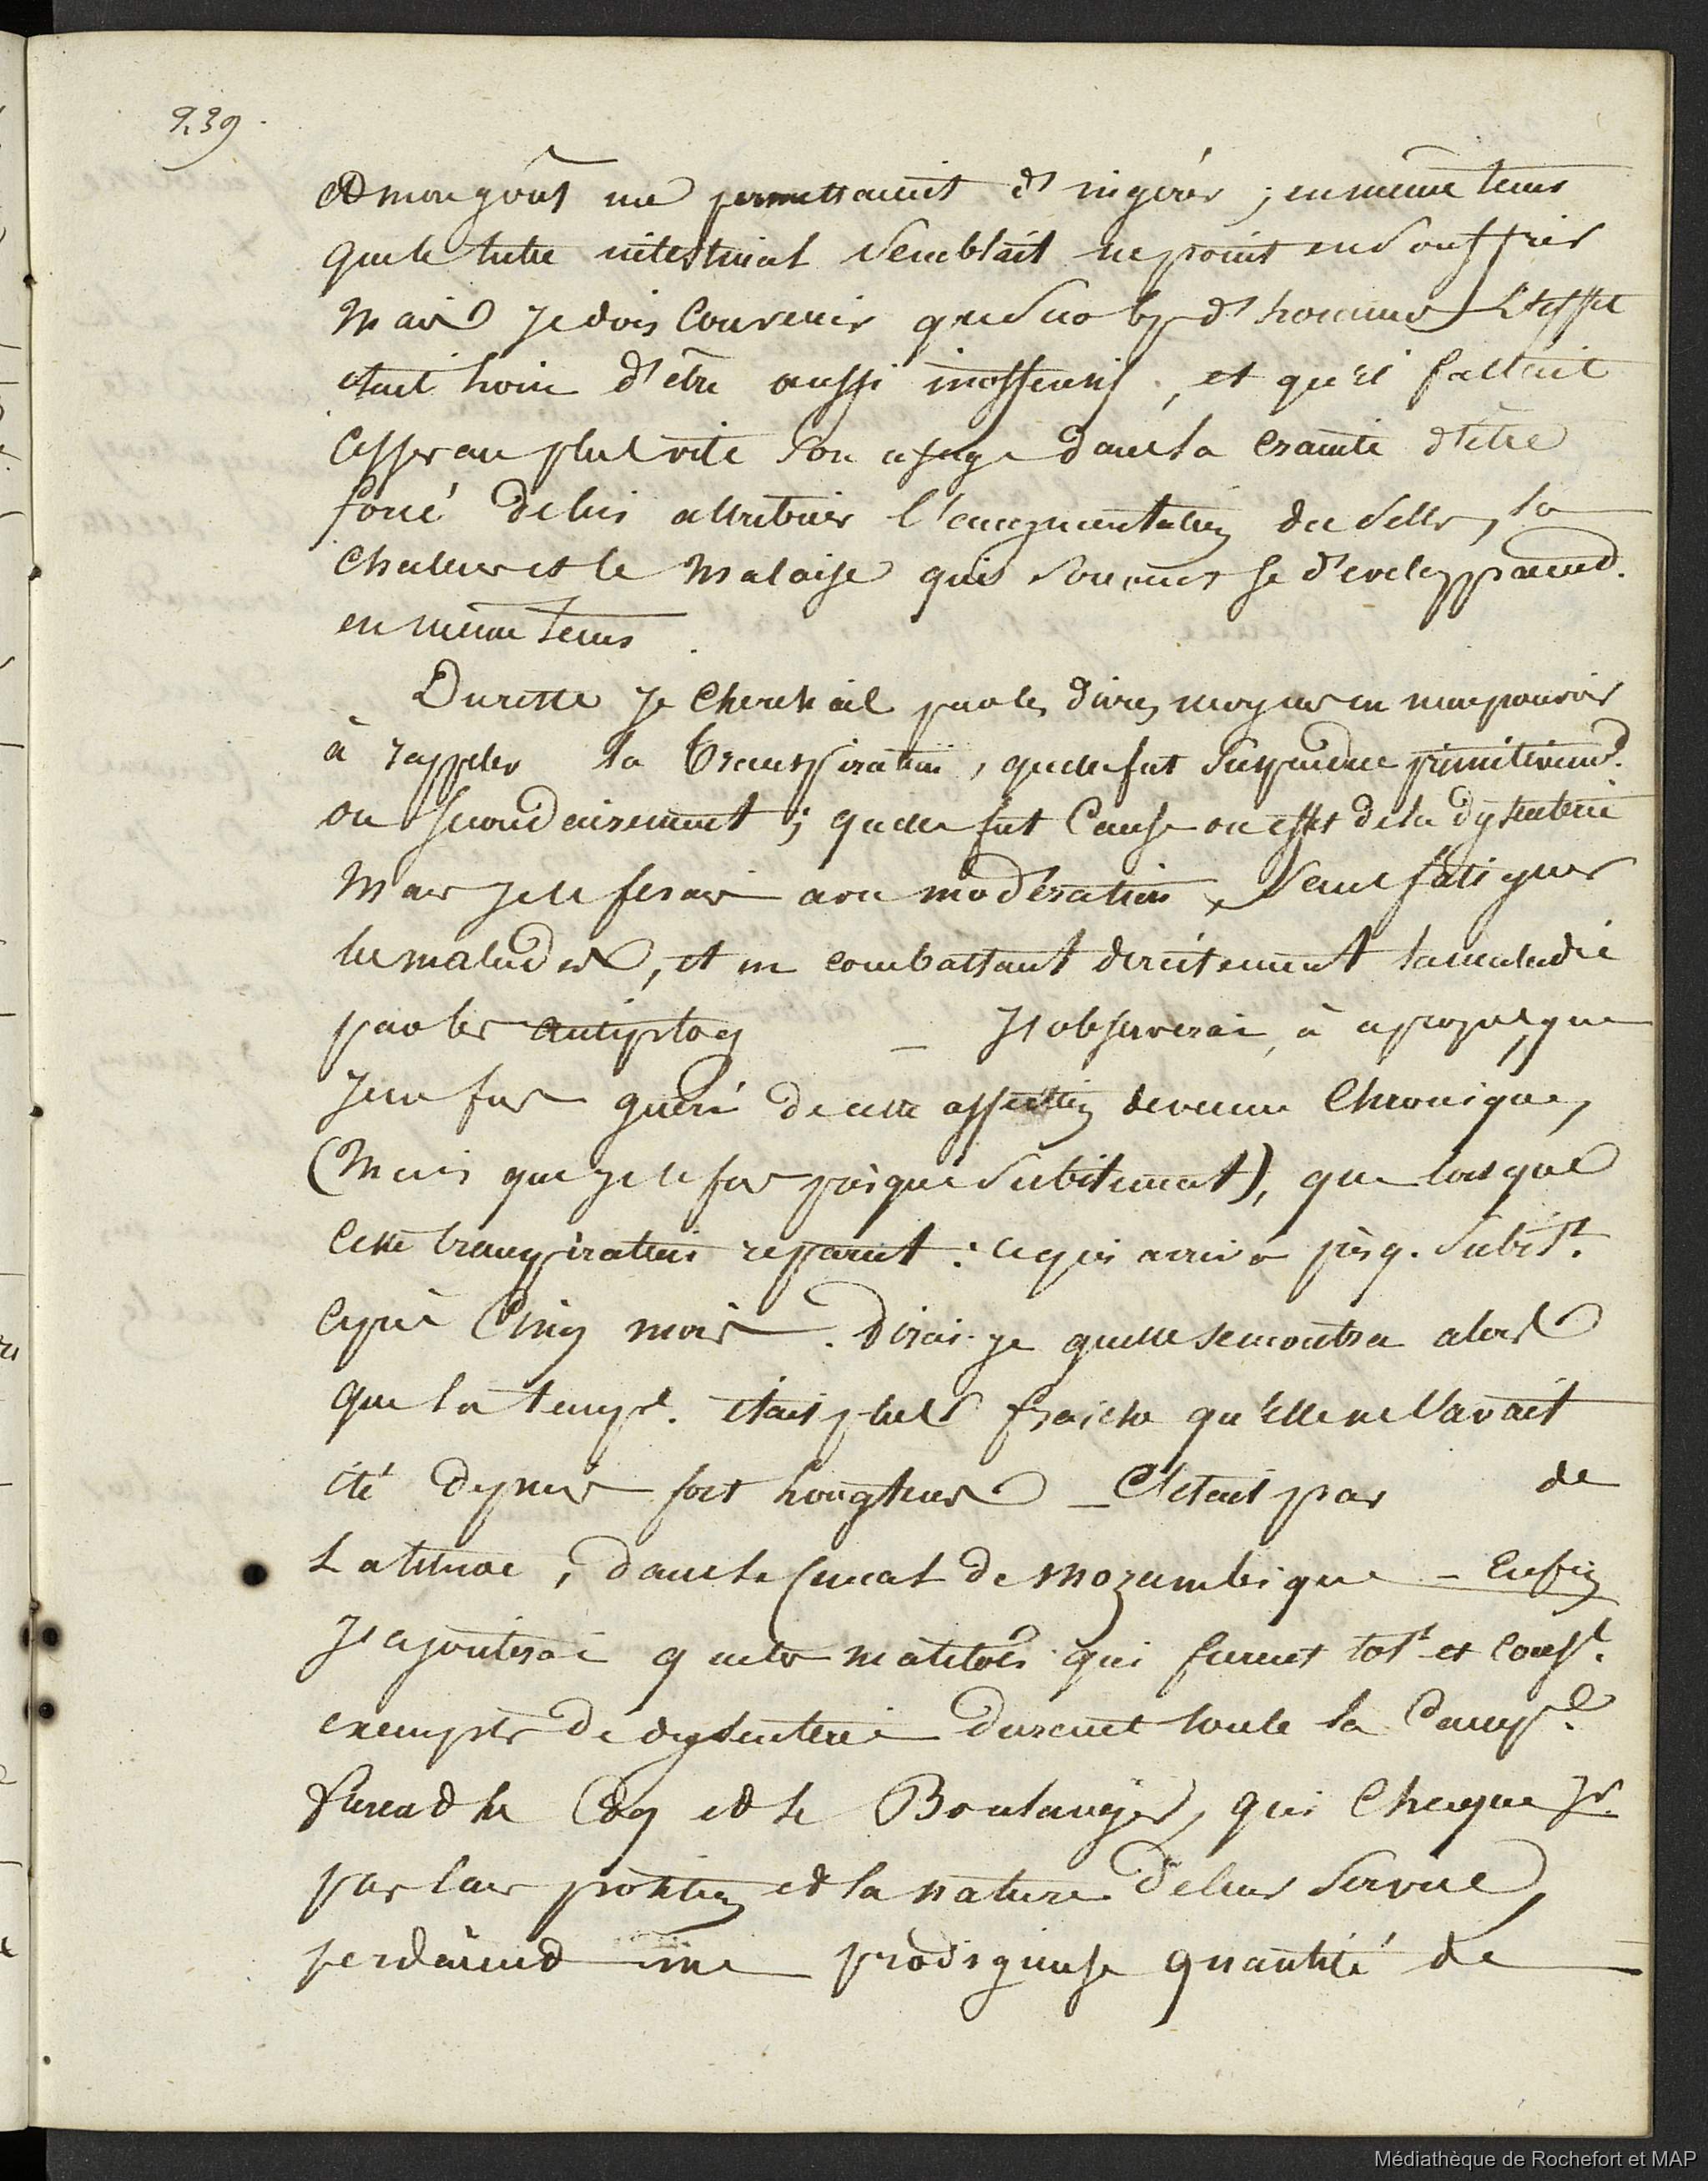 239.
et mon goût me permettaient d'ingérer ; en même tems
que le tube intestinal semblait ne point en souffrir
Mais je dois convenir que sur bp d'hommes l'effet
était loin d'être aussi inoffensif, et qu'il fallait
cesser au plus vite son usage dans la crainte d'être
forcé de lui attribuer l'augmentation des selles, la
chaleur et le malaise qui souvent se développaient
en même tems.
Du reste je cherchais par les divers moyens en mon pouvoir
à rappeler la transpiration, qu'elle fut suspendue primitivemt.
ou secondairement ; qu'elle fut cause ou effet de la dysenterie
Mais je le fesais avec modération, sans fatiguer
les malades, et en combattant directement la maladie
par les antiphlog — J'observerai, à ce propos, que
je ne fus guéri de cette affection devenue chronique,
(Mais que je le fus presque subitement), que lorsque
cette transpiration reparut : ce qui arriva presq. subitt.
après cinq mois. Dirai-je qu'elle se montra alors
que la tempe. était plus fraîche qu'elle ne l'avait
été depuis fort longtems — C'était par de
Latitude, dans le canal de Mozambique — Enfin
J'ajouterai que les matelots qui furent tott et const.
exempts de dysenterie durant toute la Campe.
furent le Coq et le Boulanger, qui chaque jr.
par leur position et la nature de leur service,
perdaient une prodigieuse quantité de
Médiathèque de Rochefort et MAP